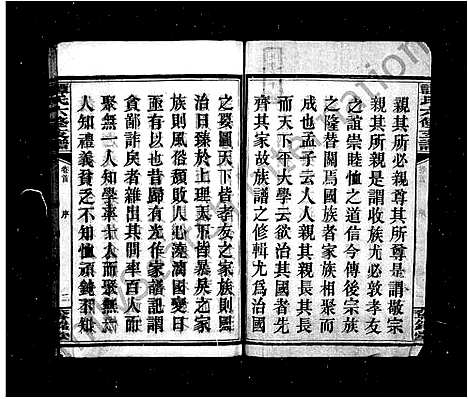 親其所必親尊其所尊是謂敬宗
親其所親是謂收族尤必敦孝友
之誼崇睦恤之道信今傳後宗族
之隆替關焉國族者家族相聚而
成也孟子云人人親其親長其長
而天下平大學云欲治其國者先
齊其家故族譜之修輯尤爲治國
之要圖天下皆孝友之家族則國
治日臻於上理天下皆暴戾之家
族則風俗頹敗人心澆漓國變日
亟有以也昔歸有光作家譜記謂
貪鄙詐戾者雜出其間率百人而
聚無一人知學率十人而聚無一
人知禮義貧乏不知恤頑鈍不知
卷首
序
三